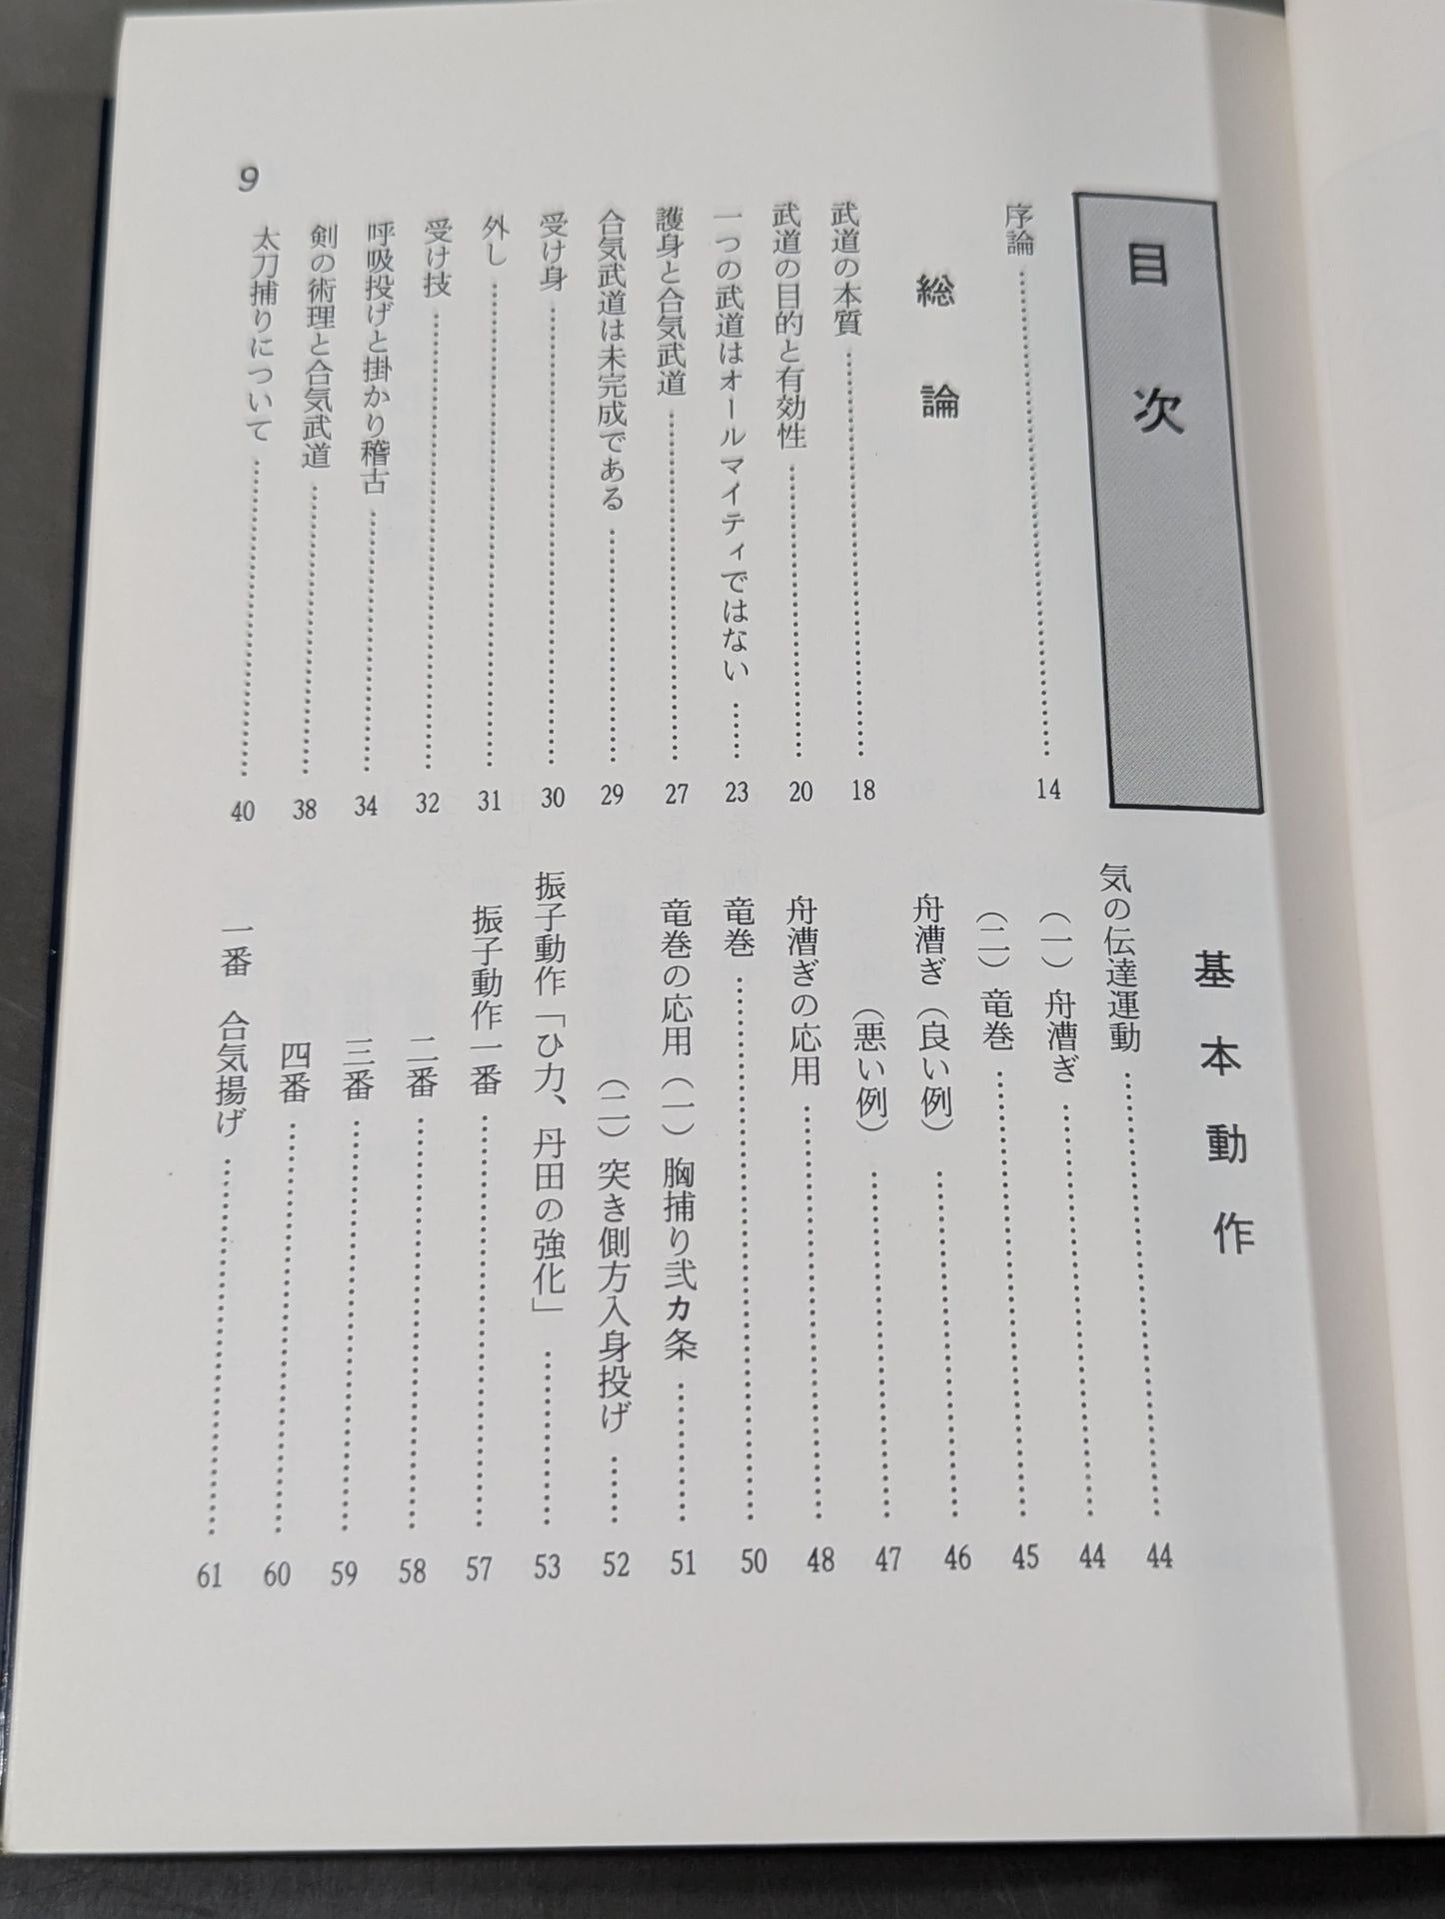 目次
序論 14
総論
武道の本質 18
武道の目的と有効性 20
一つの武道はオールマイティではない 23
護身と合気武道 27
合気武道は未完成である 29
受け身 30
外し 31
受け技 32
呼吸投げと掛かり稽古 34
剣の術理と合気武道 38
太刀捕りについて 40
基本動作
気の伝達運動 44
(一) 舟漕ぎ 44
(二) 竜巻 45
舟漕ぎ (良い例) 46
(悪い例) 47
舟漕ぎの応用 48
竜巻 50
竜巻の応用 (一) 胸捕り弐カ条 51
(二) 突き側方入身投げ 52
振子動作「ひ力、丹田の強化」 53
振子動作一番 57
二番 58
三番 59
四番 60
一番 合気揚げ 61
9